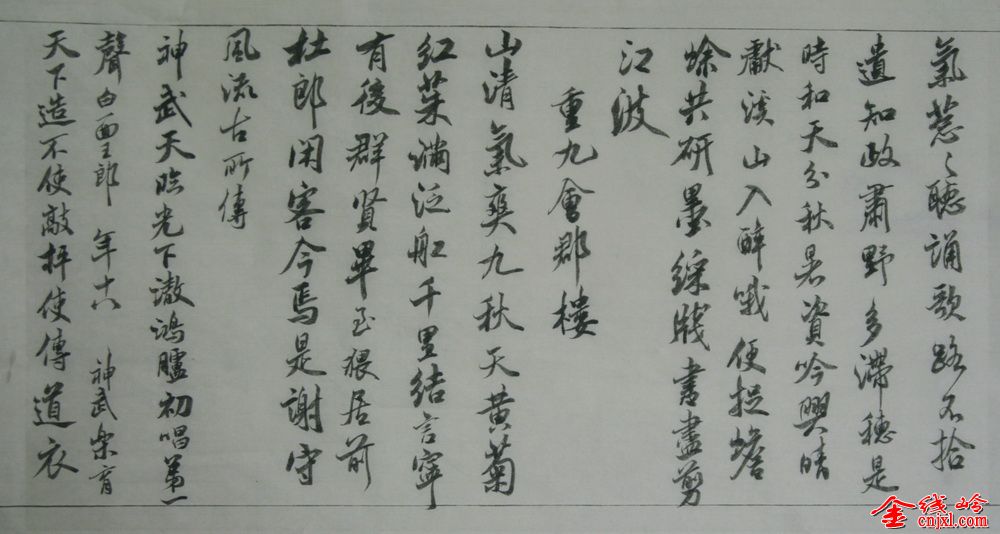 氣葱〻聽誦歌路不拾
遺知政肅野多滯穗是
時和天分秋暑資吟興晴
獻溪山入醉哦便捉蟾
蜍共研墨綵牋書盡剪
江波
重九會郡樓
山清氣爽九秋天黃菊
紅茱滿泛船千里結言寧
有後群賢畢至猥居前
杜郎閑客今焉是謝守
風流古所傳
神武天臨光下澈鴻臚初唱第一
聲白面王郎 年十八 神武樂育
天下造不使敲抨使傳道衣
金线岭
cnjxl.com